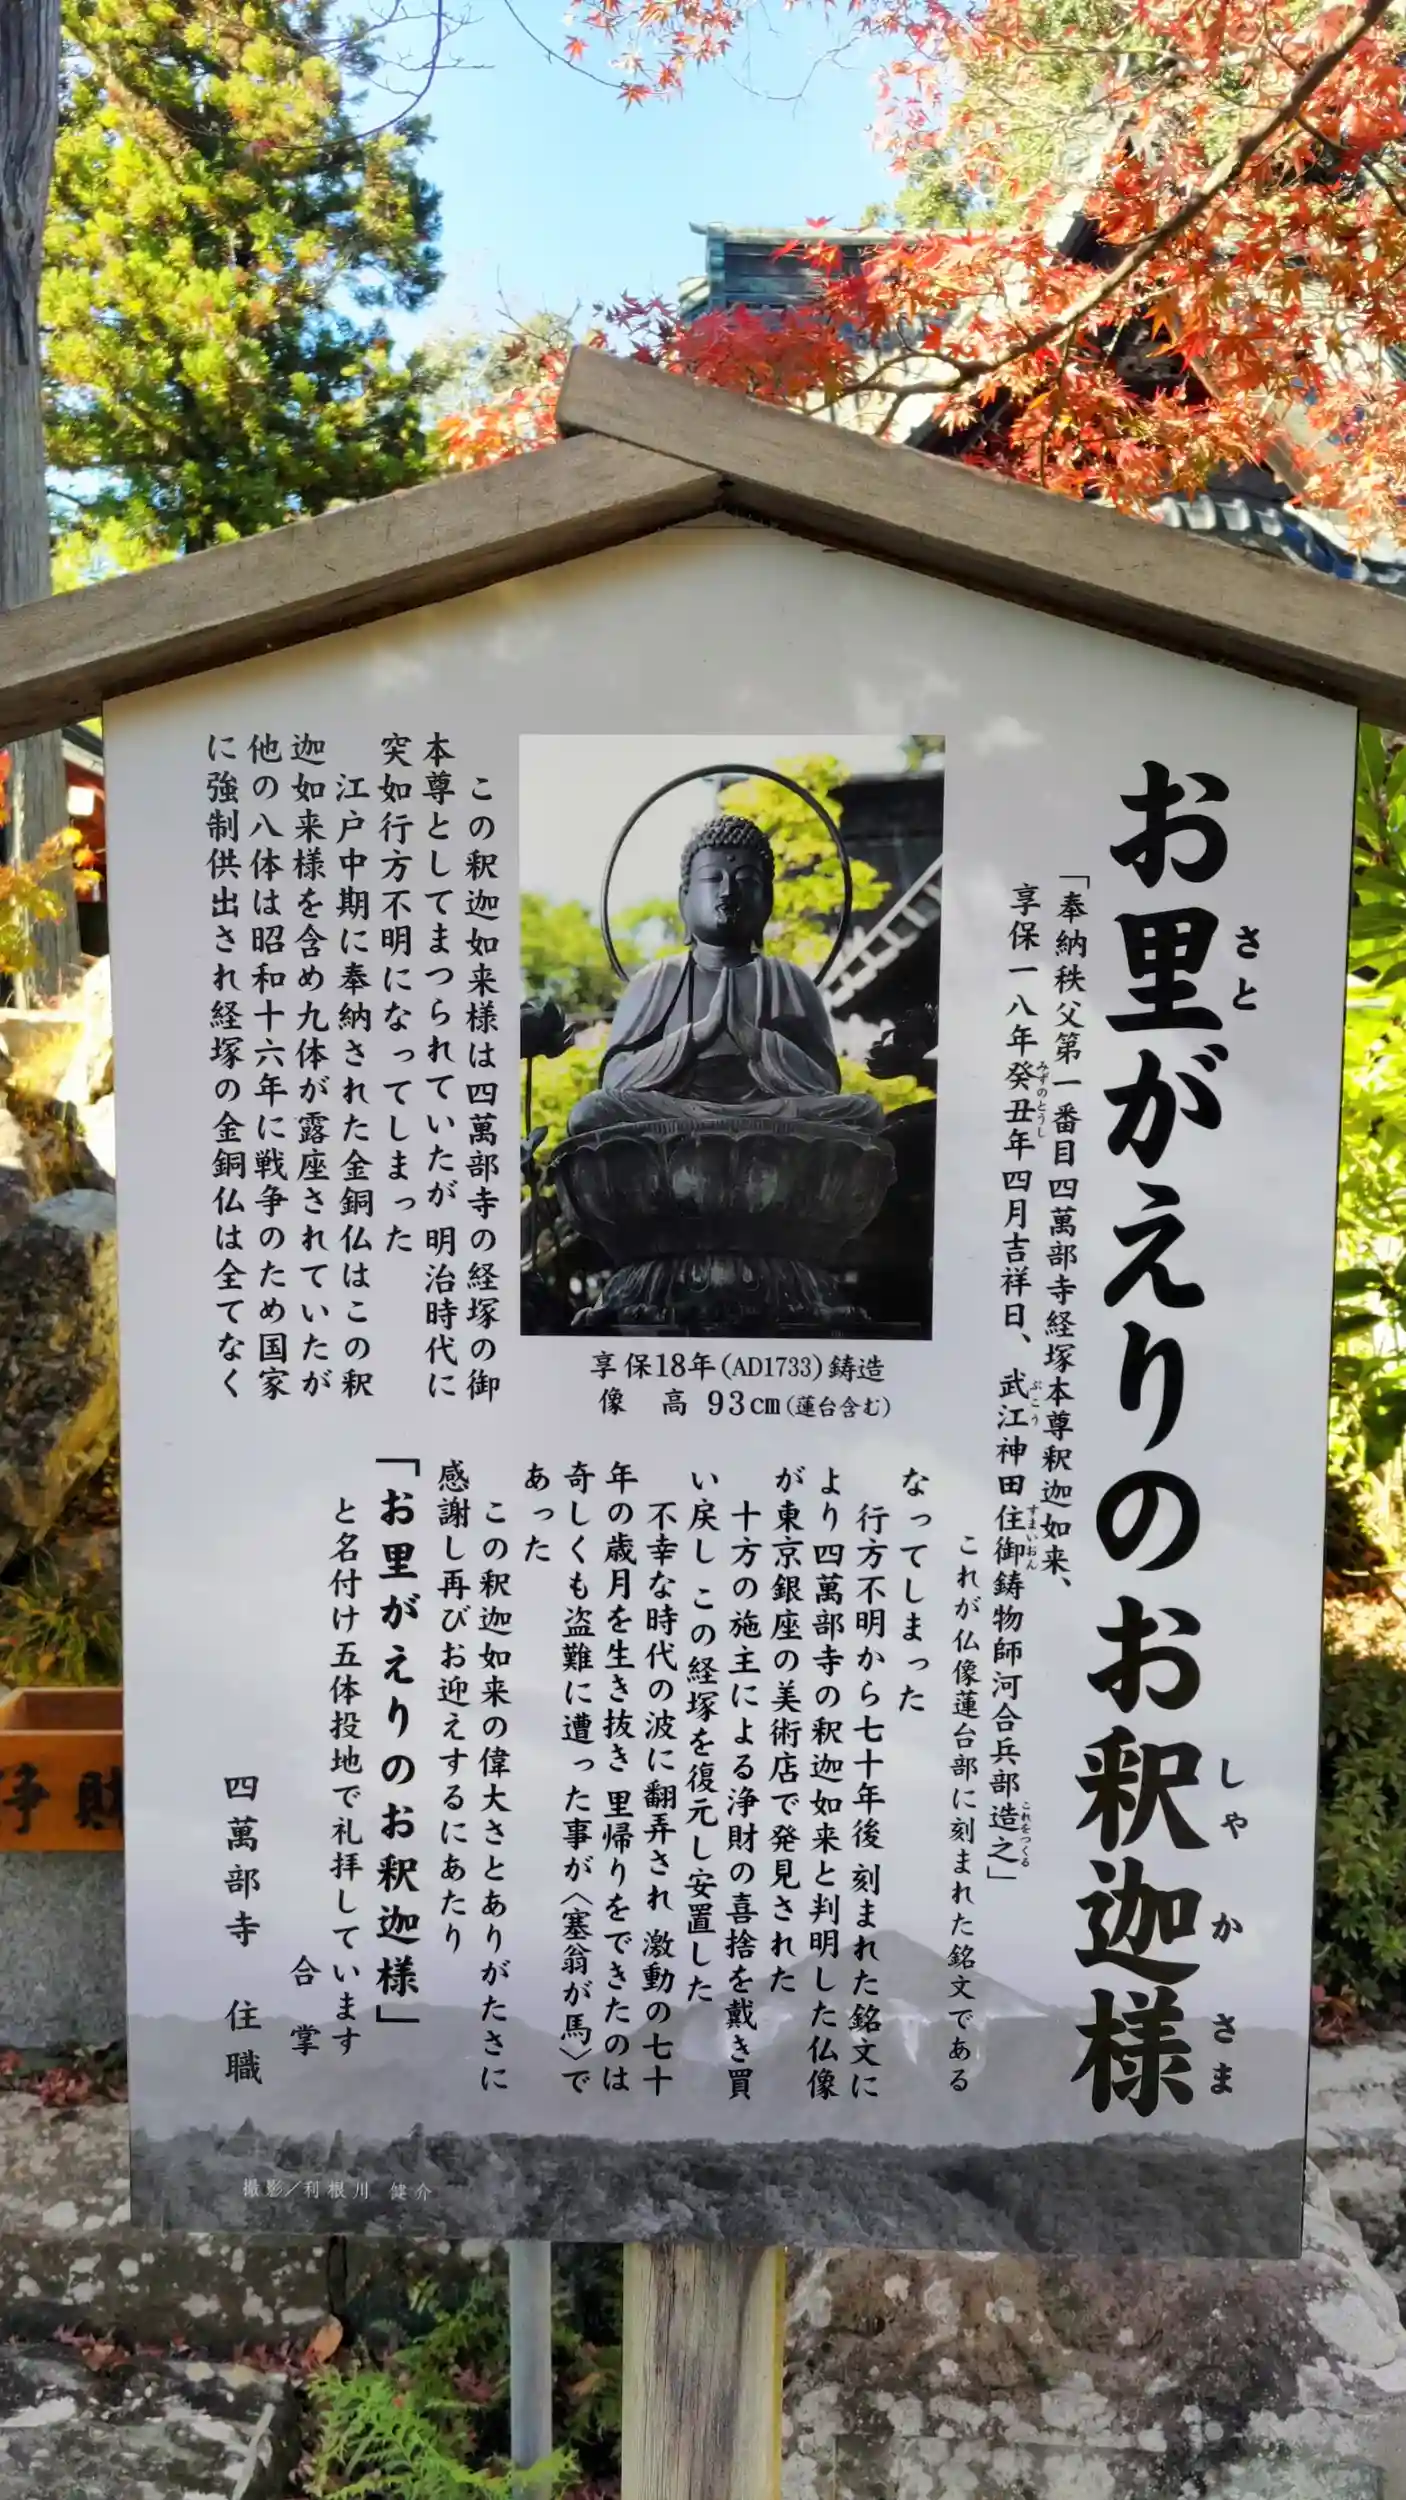 お里がえりのお釈迦様
さと
しゃ か さま
「奉納秩父第一番目四萬部寺経塚本尊釈迦如来、
享保一八年癸丑年四月吉祥日、武江神田住御鋳物師河合兵部造之」
みずのとうし
ぶこう
すまいおん
これをつくる
これが仏像蓮台部に刻まれた銘文である
享保18年(AD1733)鋳造
像 高 93cm(蓮台含む)
この釈迦如来様は四萬部寺の経塚の御
本尊としてまつられていたが 明治時代に
突如行方不明になってしまった
江戸中期に奉納された金銅仏はこの釈
迦如来様を含め九体が露座されていたが
他の八体は昭和十六年に戦争のため国家
に強制供出され経塚の金銅仏は全てなく
なってしまった
行方不明から七十年後 刻まれた銘文に
より四萬部寺の釈迦如来と判明した仏像
が東京銀座の美術店で発見された
十方の施主による浄財の喜捨を戴き買
い戻し この経塚を復元し安置した
不幸な時代の波に翻弄され 激動の七十
年の歳月を生き抜き 里帰りをできたのは
奇しくも盗難に遭った事が〈塞翁が馬〉で
あった
この釈迦如来の偉大さとありがたさに
感謝し再びお迎えするにあたり
「お里がえりのお釈迦様」
と名付け五体投地で礼拝しています
合 掌
四萬部寺 住職
撮影／利根川 健介
浄財